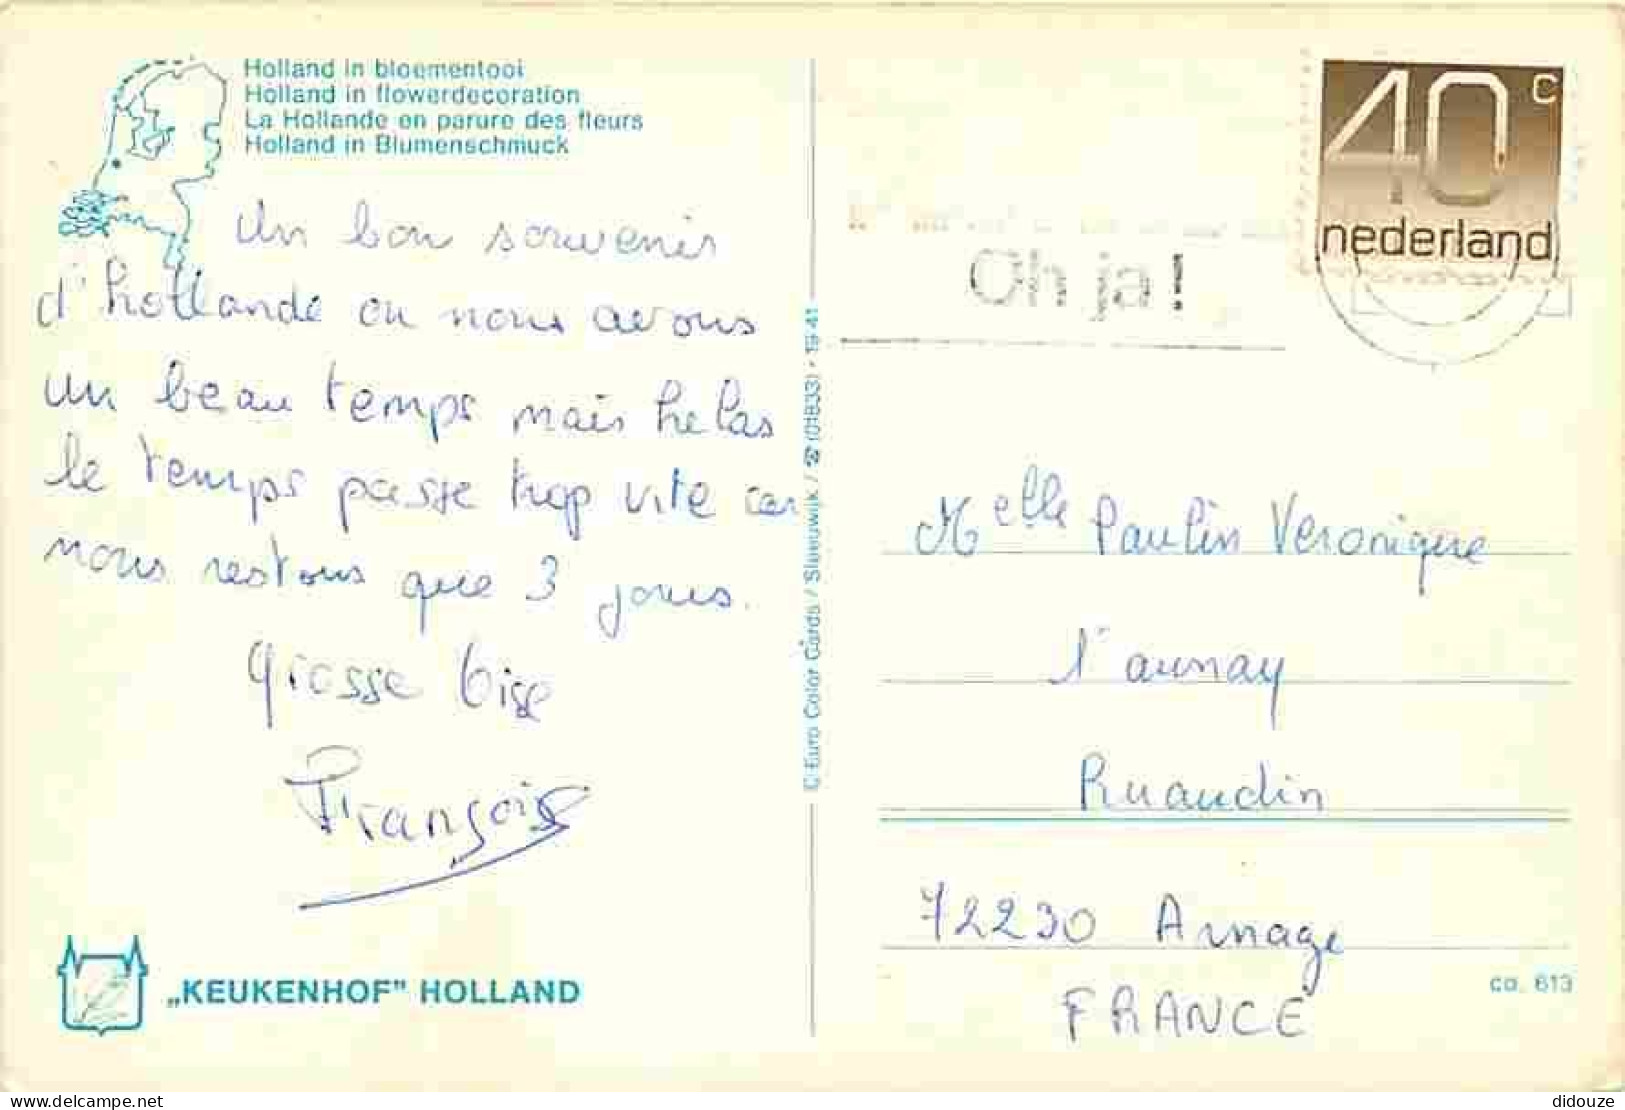 Holland in bloementooi
Holland in flowerdecoration
La Hollande en parure des fleurs
Holland in Blumenschmuck
Un bon souvenir
d'hollande ou nous avons
un beau temps mais helas
le temps passe trop vite car
nous restons que 3 jours.
grosse bise
François
„KEUKENHOF" HOLLAND
© Euro Color Cards / Sleeuwijk / ☎ (01833) - 19 41
40 c
nederland
Oh ja!
Melle Paulin Veronique
l'aunay
Ruaudin
72230 Arnage
FRANCE
ca. 613
https://www.delcampe.net
didouze